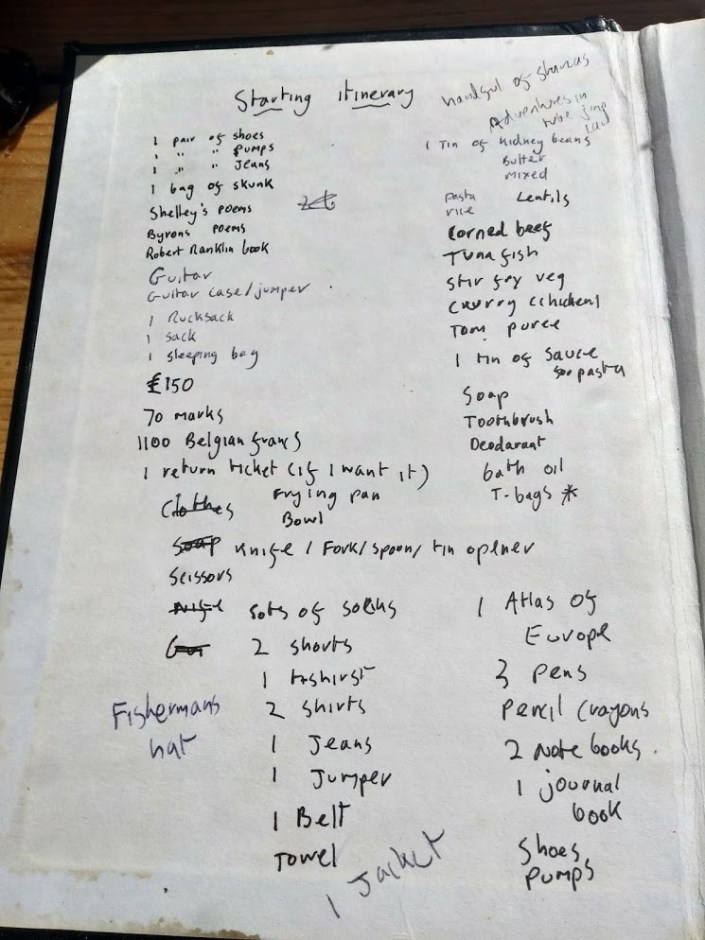 Starting itinerary
1 pair of shoes
1 " " pumps
1 " " Jeans
1 bag of skunk
Shelley's poems
Byrons poems
Robert Ranklin book
Guitar
Guitar case/jumper
1 Rucksack
1 sack
1 sleeping bag
£150
70 marks
1100 Belgian francs
1 return ticket (if I want it)
Clothes Frying pan
Bowl
Soap knife / Fork/spoon/ tin opener
Scissors
knife sots of socks
2 shorts
1 tshirst
2 shirts
1 Jeans
1 Jumper
1 Belt
Towel
1 Jacket
Fishermans
hat
handful of
Adventures in
1 Tin of kidney beans
Butter
mixed
Pasta Lentils
rice
Corned beef
Tuna fish
stir fry veg
Curry (chicken)
Tom puree
1 tin of sauce
for pasta
Soap
Toothbrush
Deodarant
bath oil
T-bags *
1 Atlas of
Europe
3 pens
Pencil Crayons
2 note books.
1 journal
book
Shoes
Pumps